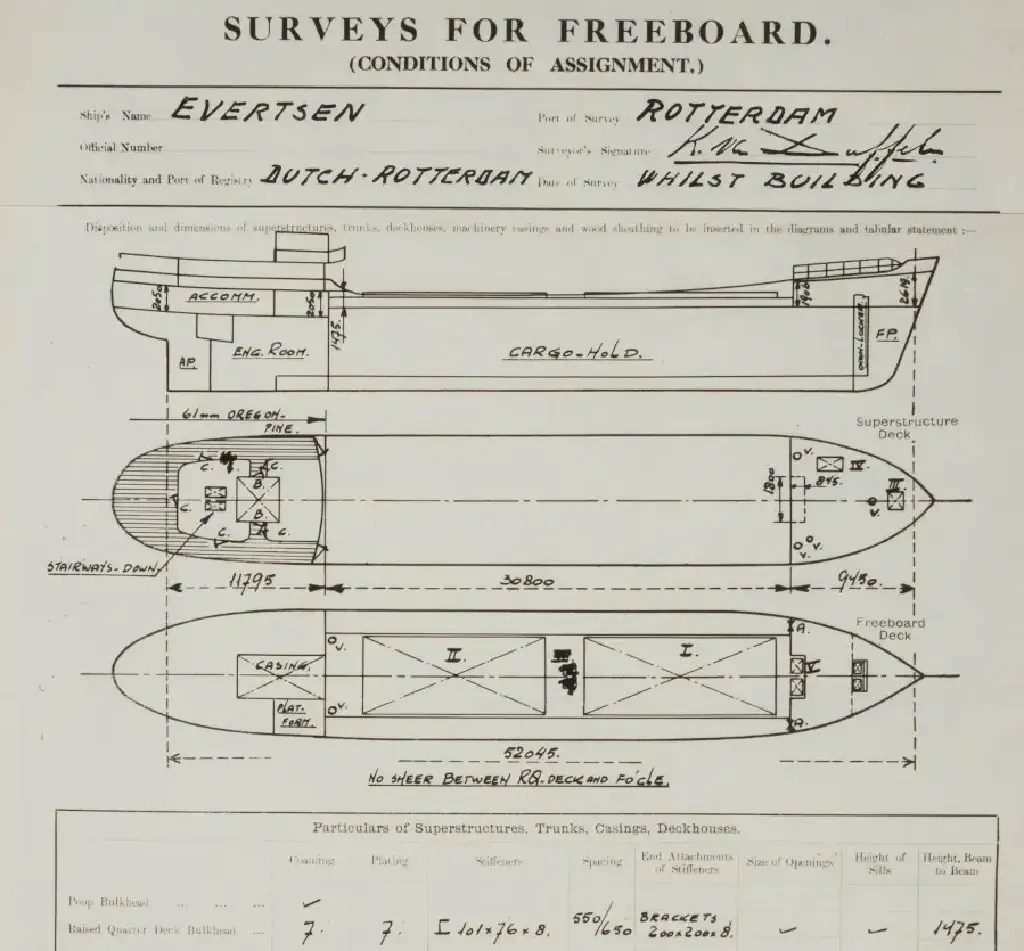 SURVEYS FOR FREEBOARD.
(CONDITIONS OF ASSIGNMENT.)
Ship's Name EVERTSEN
Port of Survey ROTTERDAM
Official Number
Surveyor's Signature
Nationality and Port of Registry DUTCH - ROTTERDAM
Date of Survey WHILST BUILDING
Disposition and dimensions of superstructures, trunks, deckhouses, machinery casings and wood sheathing to be inserted in the diagrams and tabular statement :—
2050 ACCOMM. 2050 1475. 1900 2619.
AP. ENG. ROOM. CARGO-HOLD. CHAIN-LOCKER FP.
61mm OREGON-
PINE.
Superstructure
Deck
C. C. V. IV.
B. 1800 845. III.
C. B. V.
C. C. V. V.
STAIRWAYS-DOWN.
11795 30800 9450.
V. A. Freeboard
Deck
CASING. II. I. V
PLAT-
FORM. V. A.
52045.
NO SHEER BETWEEN RQ. DECK AND FO'CLE.
Particulars of Superstructures, Trunks, Casings, Deckhouses.
Coaming Plating Stiffeners Spacing End Attachments of Stiffeners Size of Openings Height of Sills Height, Beam to Beam
Poop Bulkhead ... ... ... ✓
Raised Quarter Deck Bulkhead ... 7. 7. 101 x 76 x 8. 550/650 BRACKETS 200x200x8. ✓ ✓ 1475.